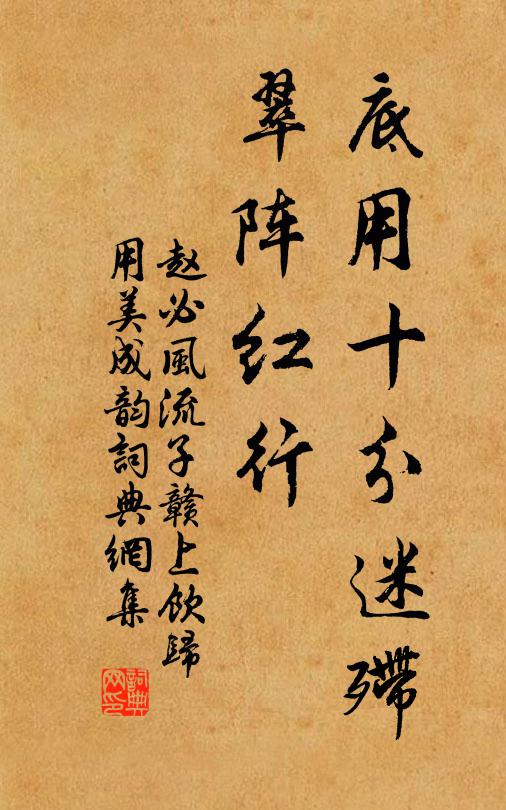 底用十分迷殢
翠阵红行
赵必风流子赣上饮歸
用美成韵詞典網集
詞典网印